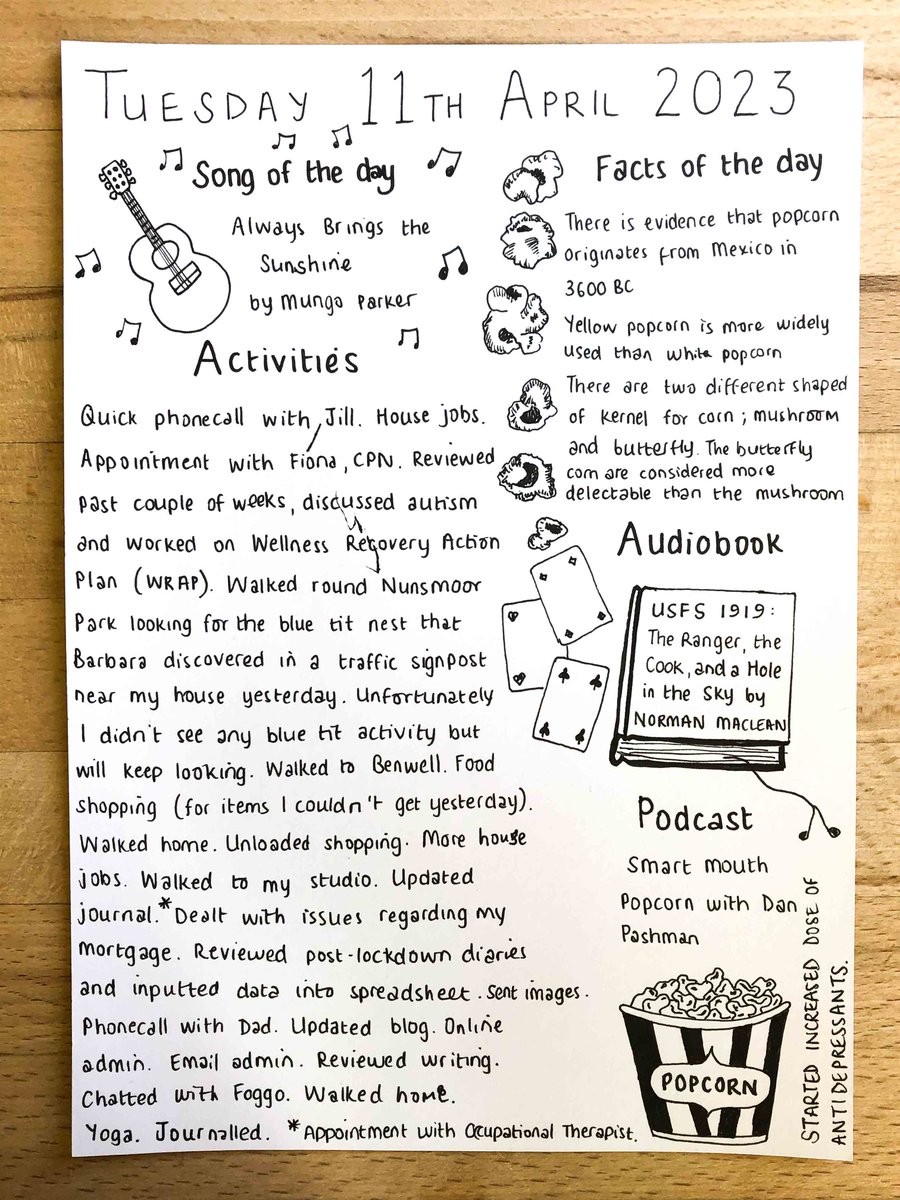 TUESDAY 11TH APRIL 2023
Song of the day
Always Brings the
Sunshine
by Mungo Parker
Activities
Quick phonecall with Jill. House jobs.
Appointment with Fiona, CPN. Reviewed
past couple of weeks, discussed autism
and worked on Wellness Recovery Action
Plan (WRAP). Walked round Nunsmoor
Park looking for the blue tit nest that
Barbara discovered in a traffic signpost
near my house yesterday. Unfortunately
I didn't see any blue tit activity but
will keep looking. Walked to Benwell. Food
shopping (for items I couldn't get yesterday).
Walked home. Unloaded shopping. More house
jobs. Walked to my studio. Updated
journal.* Dealt with issues regarding my
mortgage. Reviewed post-lockdown diaries
and inputted data into spreadsheet. Sent images.
Phonecall with Dad. Updated blog. Online
admin. Email admin. Reviewed writing.
Chatted with Foggo. Walked home.
Yoga. Journalled. *Appointment with Ocupational Therapist.
Facts of the day
There is evidence that popcorn
originates from Mexico in
3600 BC
Yellow popcorn is more widely
used than white popcorn
There are two different shaped
of kernel for corn; mushroom
and butterfly. The butterfly
corn are considered more
delectable than the mushroom
Audiobook
USFS 1919:
The Ranger, the
Cook, and a Hole
in the Sky by
NORMAN MACLEAN
Podcast
Smart mouth
Popcorn with Dan
Pashman
POPCORN
STARTED INCREASED DOSE OF
ANTIDEPRESSANTS.